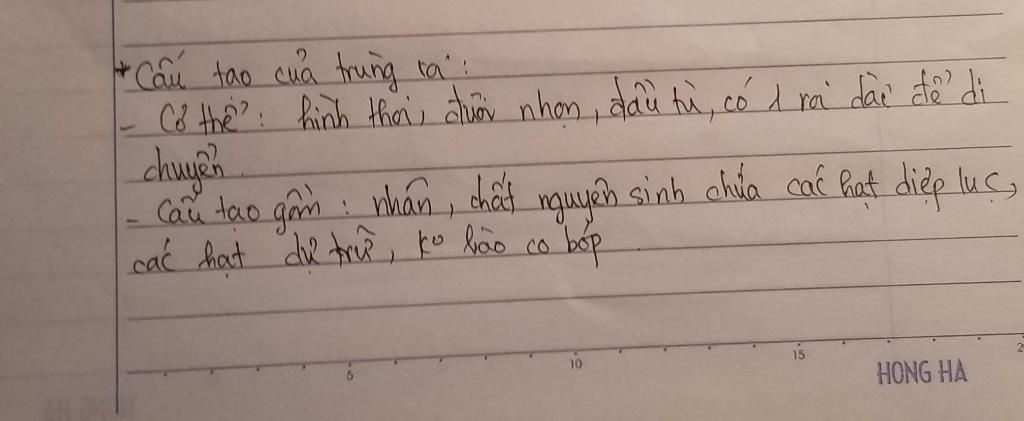 + Cấu tạo của trùng roi:
- Cơ thể: hình thoi, đuôi nhọn, đầu tù, có 1 roi dài để di
chuyển.
- Cấu tạo gồm: nhân, chất nguyên sinh chứa các hạt diệp lục,
các hạt dự trữ, ko bào co bóp
5 10 15 2
HONG HA